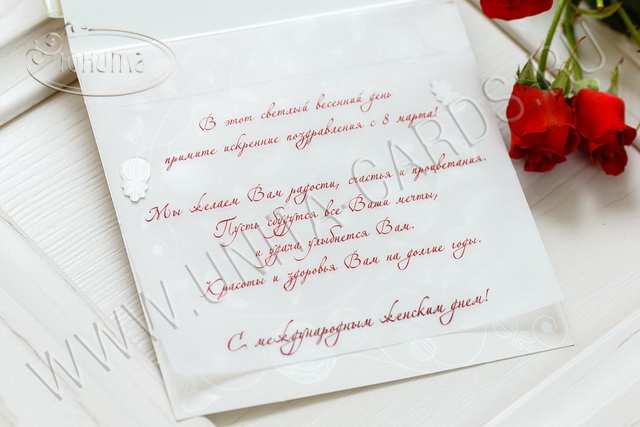 Юнита
В этот светлый весенний день
примите искренние поздравления с 8 марта!
Мы желаем Вам радости, счастья и процветания.
Пусть сбудутся все Ваши мечты,
и удача улыбнется Вам.
Красоты и здоровья Вам на долгие годы.
С международным женским днем!
WWW.UNITA-CARDS.RU